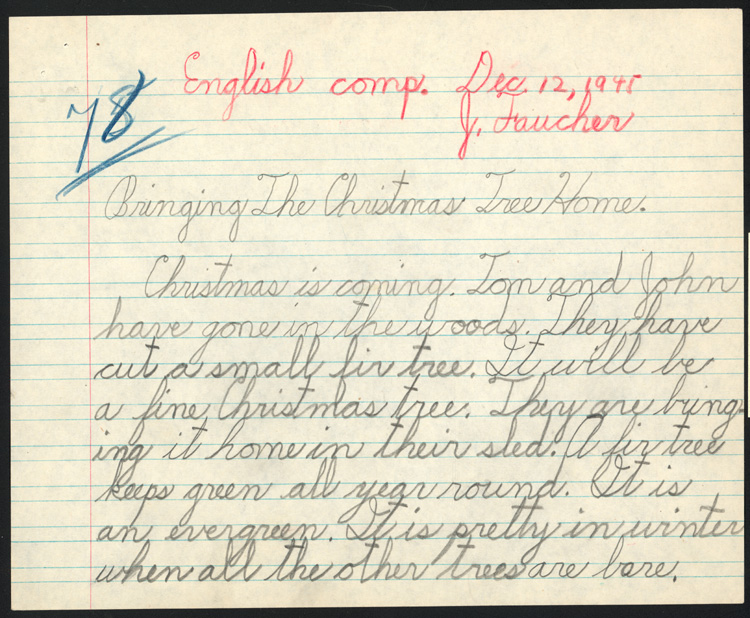 English comp. Dec. 12, 1945
J. Faucher
78
Bringing The Christmas Tree Home.
Christmas is coming. Tom and John
have gone in the woods. They have
cut a small fir tree. It will be
a fine Christmas tree. They are bring-
ing it home in their sled. A fir tree
keeps green all year round. It is
an evergreen. It is pretty in winter
when all the other trees are bare.